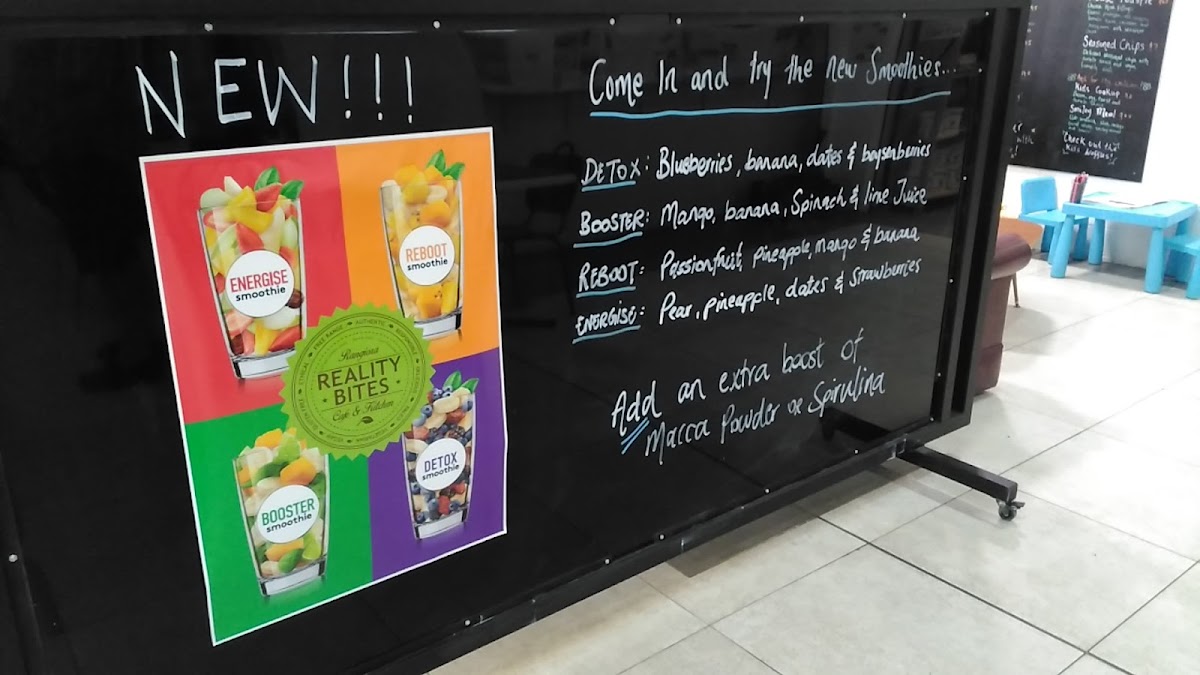 NEW!!!
Come In and try the new Smoothies...
DETOX: Blueberries, banana, dates & boysenberries
BOOSTER: Mango, banana, Spinach & lime Juice
REBOOT: Passionfruit, pineapple, mango & banana
ENERGISE: Pear, pineapple, dates & strawberries
Add an extra boost of
Macca Powder or Spirulina
ENERGISE
smoothie
REBOOT
smoothie
FREE RANGE
AUTHENTIC
Rangiora
REALITY
BITES
Café & Kitchen
BOOSTER
smoothie
DETOX
smoothie
Seasoned Chips
Kids Cookup
Smiley Meal
Check out the